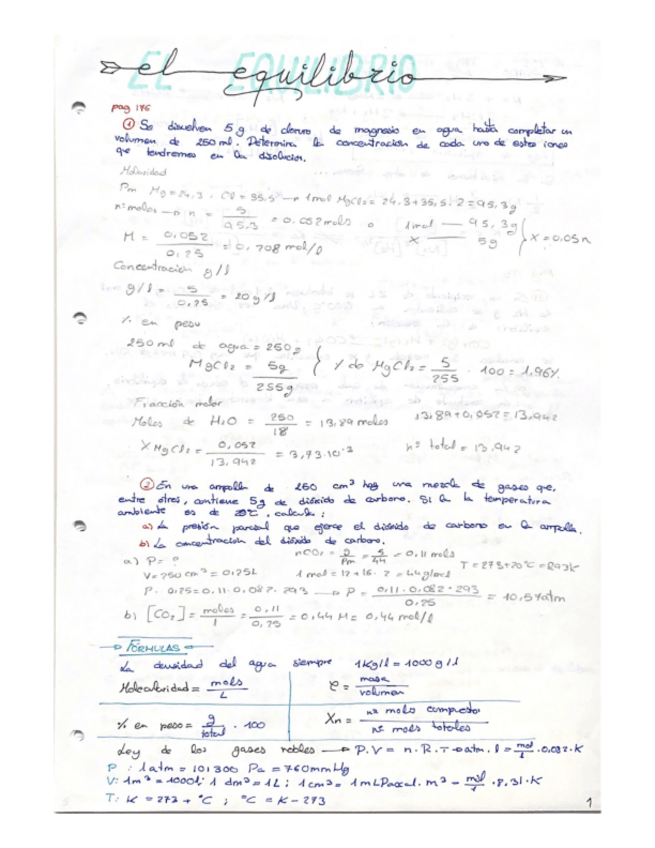 el equilibrio
EL EQUILIBRIO
pag 176
① Se disuelven 5 g de cloruro de magnesio en agua hasta completar un
volumen de 250 ml. Determina la concentración de cada uno de estos iones
que tendremos en la disolución.
Molaridad
Pm Mg = 24,3 · Cl = 35,5 → 1 mol MgCl2 = 24,3 + 35,5 · 2 = 95,3g
nº moles → n = 5 / 95,3 = 0,052 mols o 1 mol — 95,3g
X — 5g } X = 0,05
M = 0,052 / 0,25 = 0,208 mol/l
Concentración g/l
g/l = 5 / 0,25 = 20 g/l
% en peso
250 ml de agua = 250g
MgCl2 = 5g } % de MgCl2 = 5 / 255 · 100 = 1,96%
255g
Fracción molar
Moles de H2O = 250 / 18 = 13,89 moles 13,89 + 0,052 = 13,942
X MgCl2 = 0,052 / 13,942 = 3,73·10⁻³ nº total = 13,942
② En una ampolla de 250 cm³ hay una mezcla de gases que,
entre otros, contiene 5g de dióxido de carbono. Si la temperatura
ambiente es de 20ºC, calcula:
a) La presión parcial que ejerce el dióxido de carbono en la ampolla.
b) La concentración del dióxido de carbono.
a) P = ? nCO2 = / Pm = 5 / 44 = 0,11 mols
V = 250 cm³ = 0,25L 1 mol = 12 + 16 · 2 = 44g/mol T = 273+20ºC = 293K
P · 0,25 = 0,11 · 0,082 · 293 → P = 0,11 · 0,082 · 293 / 0,25 = 10,57atm
b) [CO2] = moles / l = 0,11 / 0,25 = 0,44 M = 0,44 mol/l
FÓRMULAS
La densidad del agua siempre 1Kg/l = 1000 g/l
Molecularidad = mols / L
ρ = masa / volumen
% en peso = g / total · 100
Xn = nº mols compuesto / nº mols totales
Ley de los gases nobles → P.V = n.R.T → atm. l = mol · 0,082 · K
P : 1 atm = 101300 Pa = 760mmHg
V: 1m³ = 1000l; 1 dm³ = 1L; 1 cm³ = 1mL Pascal. m³ – mol · 8,31 · K
T: K = 273 + ºC ; ºC = K – 273
1